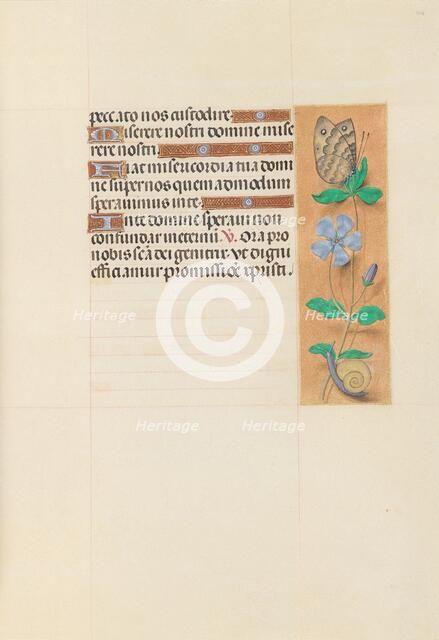 peccato nos custodire.
Miserere nostri domine mise
rere nostri.
Fiat misericordia tua domi
ne super nos quemadmodum
speravimus in te.
In te domine speravi non
confundar in eternū. V. Ora pro
nobis scā dei genitrix. Vt digni
efficiamur promissiōe xpristi.
Heritage Heritage
Heritage Heritage Heritage